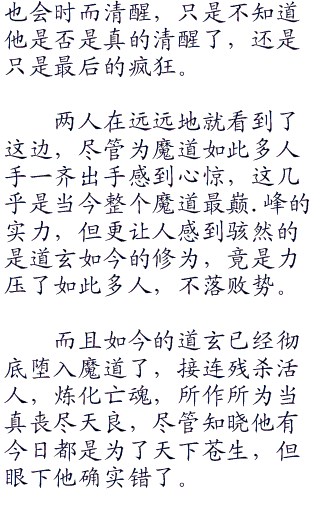 也会时而清醒，只是不知道
他是否是真的清醒了，还是
只是最后的疯狂。
两人在远远地就看到了
这边，尽管为魔道如此多人
手一齐出手感到心惊，这几
乎是当今整个魔道最巅.峰的
实力，但更让人感到骇然的
是道玄如今的修为，竟是力
压了如此多人，不落败势。
而且如今的道玄已经彻
底堕入魔道了，接连残杀活
人，炼化亡魂，所作所为当
真丧尽天良，尽管知晓他有
今日都是为了天下苍生，但
眼下他确实错了。